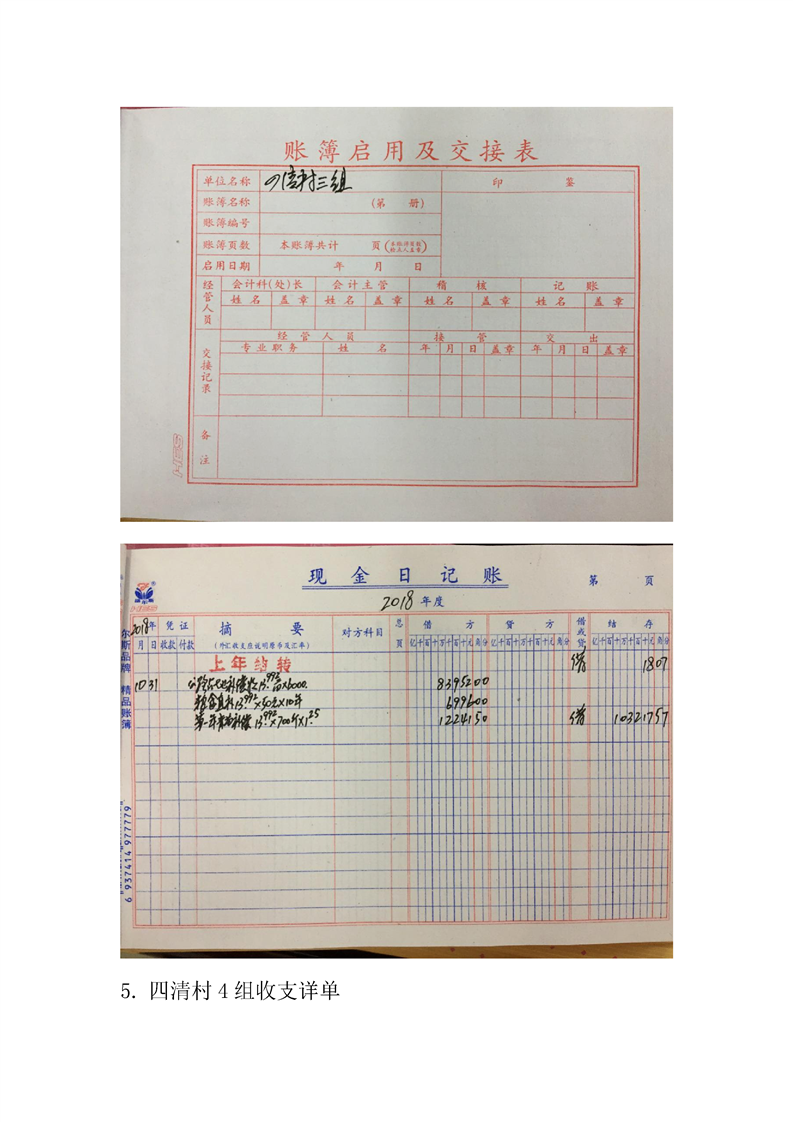 账簿启用及交接表
单位名称 四清村三组 印 鉴
账簿名称 (第 册)
账簿编号
账簿页数 本账簿共计 页
启用日期 年 月 日
经管人员 会计科(处)长 会计主管 稽 核 记 账
姓 名 盖 章 姓 名 盖 章 姓 名 盖 章 姓 名 盖 章
交接记录 经 管 人 员 接 管 交 出
专 业 职 务 姓 名 年 月 日 盖 章 年 月 日 盖 章
备 注
现 金 日 记 账
第 页
2018 年度
2018年 凭 证 摘 要 对方科目 总页 借 方 贷 方 借或贷 结 存
月 日 收款 付款 (外汇收支应说明原币及汇率) 亿千百十万千百十元角分 亿千百十万千百十元角分 亿千百十万千百十元角分
上年结转 借 1807
10 31 13.992 x6000. 8395200
13.992 x50元x10年 699600
13.992 x700 x1.25 1224150 借 10321757
尔斯品牌 精品账簿
6 937414 977779
5. 四清村 4 组收支详单